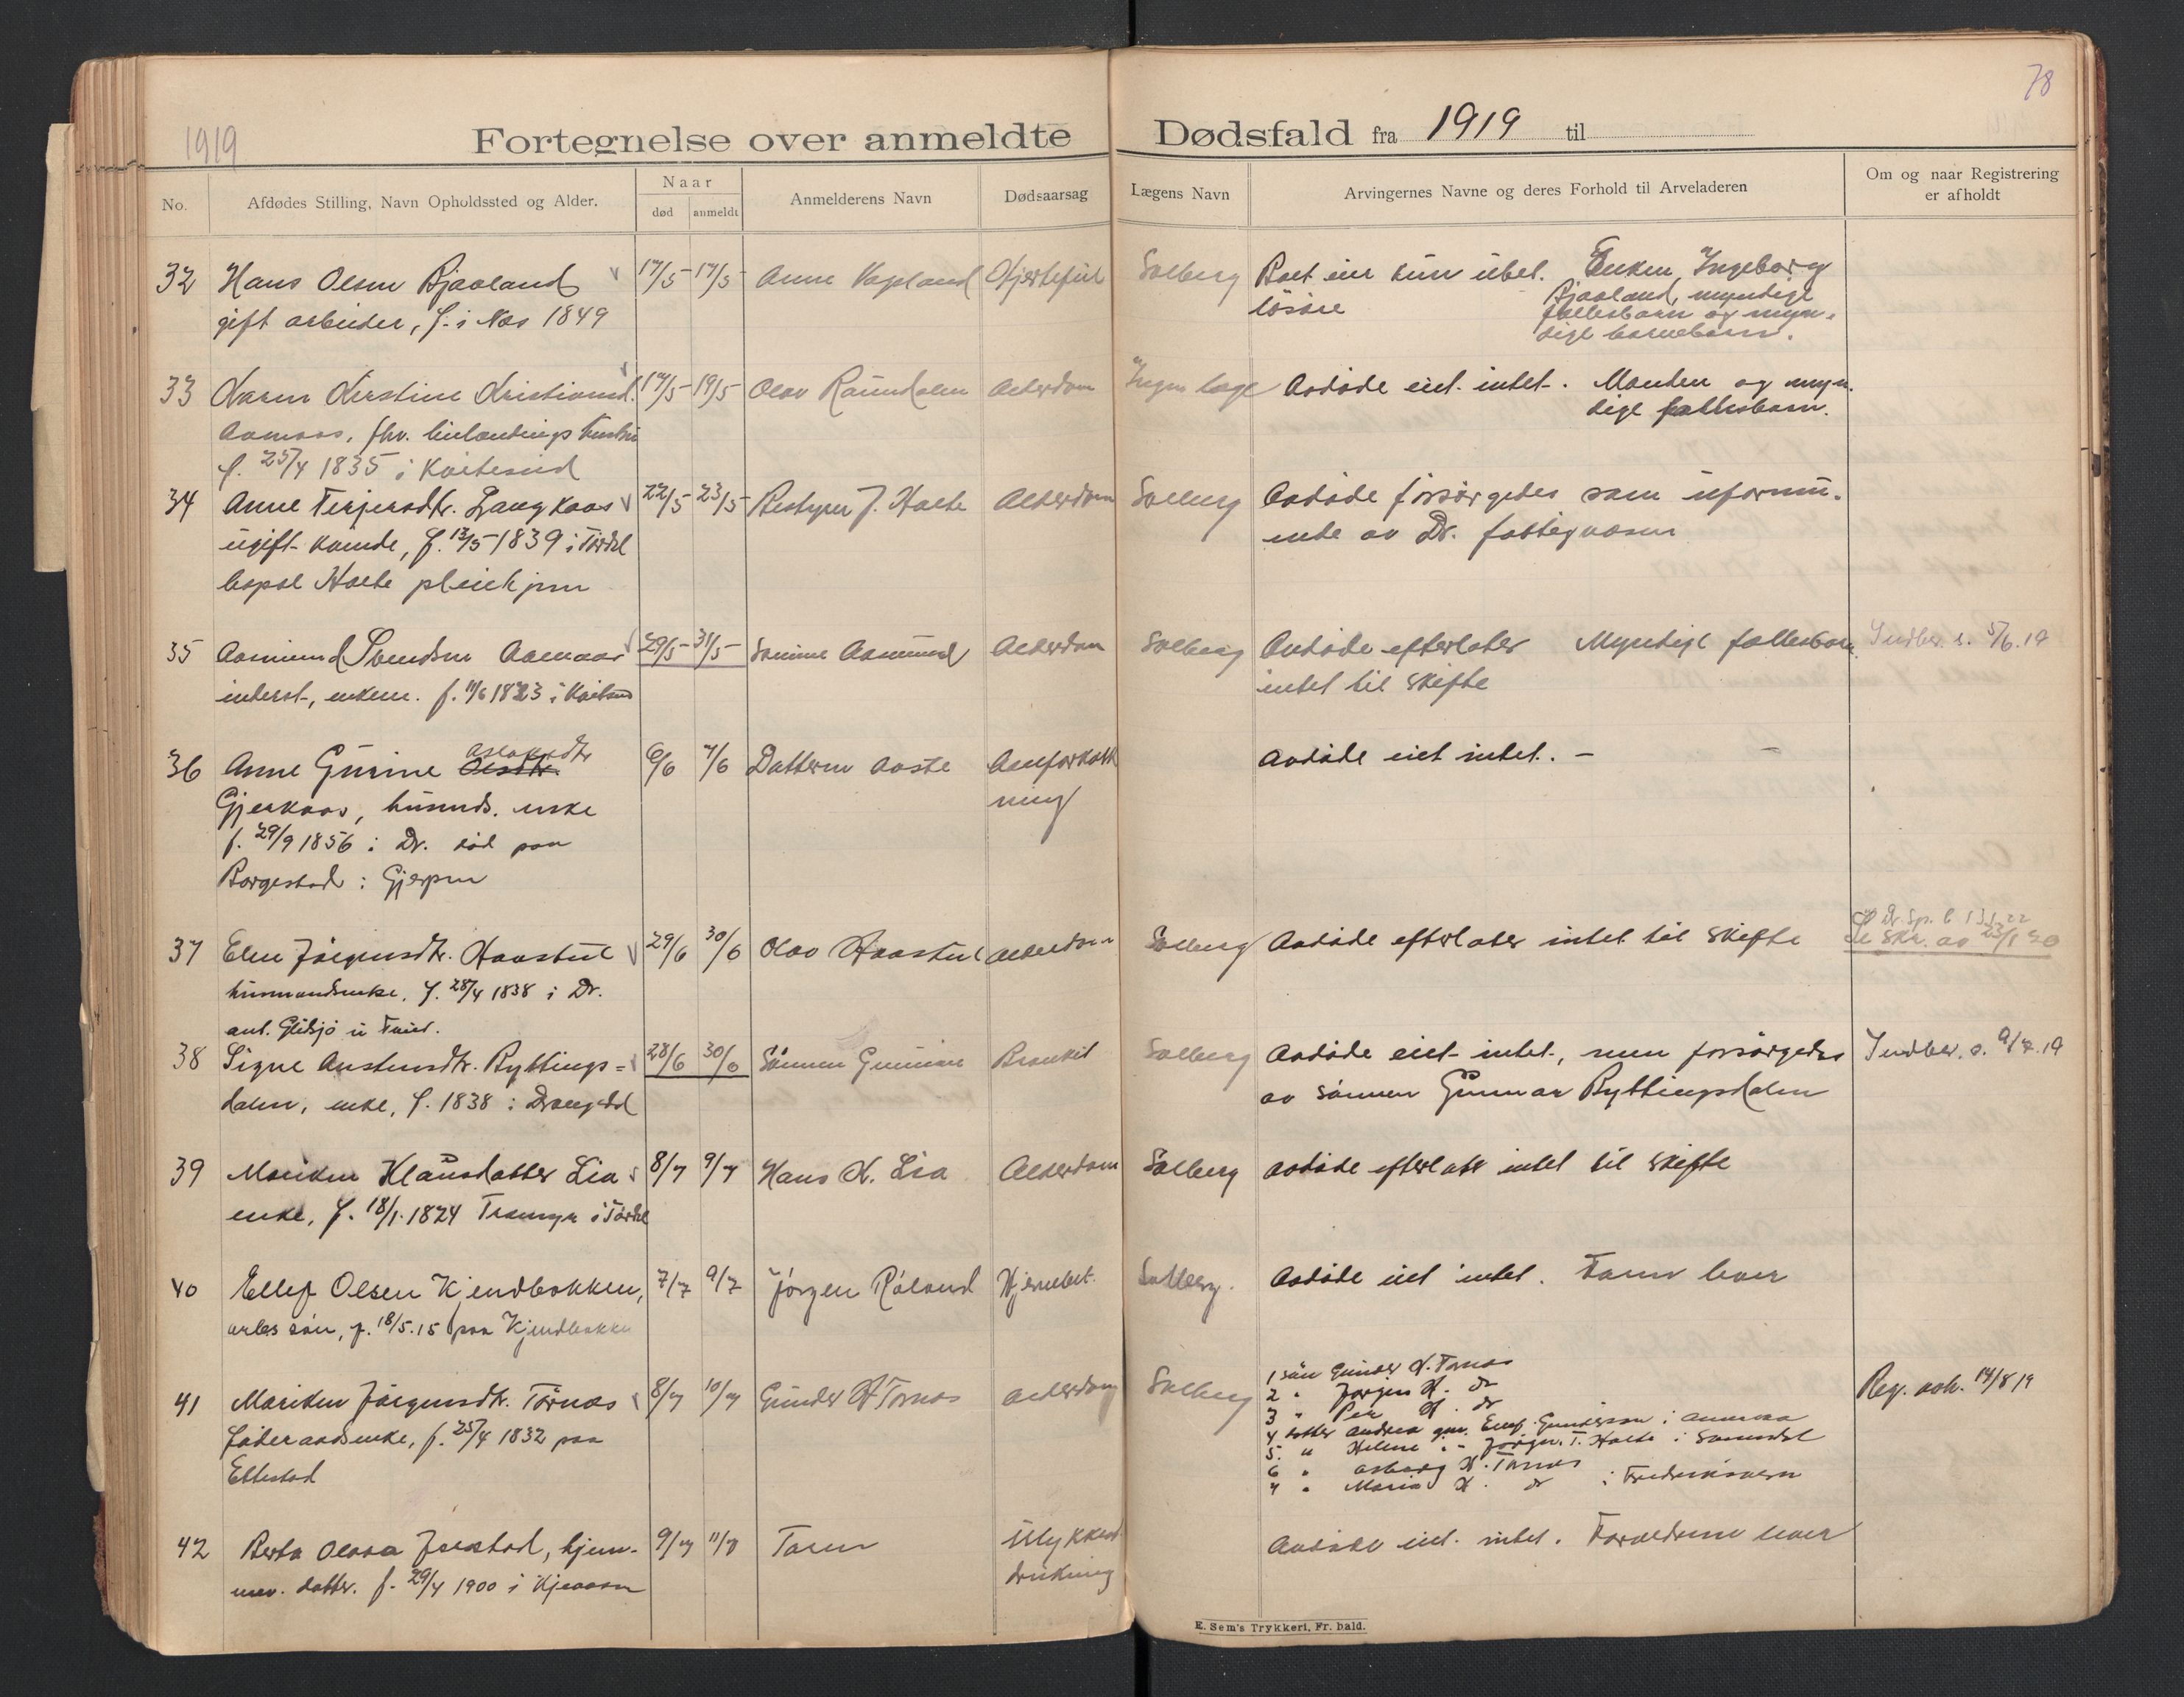 78
1919
Fortegnelse over anmeldte Dødsfald fra 1919 til
No.
Afdødes Stilling, Navn Opholdssted og Alder.
Naar
død
anmeldt
Anmelderens Navn
Dødsaarsag
Lægens Navn
Arvingernes Navne og deres Forhold til Arveladeren
Om og naar Registrering
er afholdt
32 Hans Olsen Bjaaland 17/5 17/5 Anne Hjertefeil Solberg Boet eier kun ubet. Enken Ingeborg
gift arbeider, f. i Næs 1849 løsøre Bjaaland, myndige
fællesbarn og myn-
dige barnebarn.
33 Karen Kirstine Kristiansd. 17/5 19/5 Olav Alderdom Ingen læge Avdøde eiet intet. Manden og myn-
Aamaas, fhv. hustru dige fællesbarn.
f. 25/4 1835 i
34 Anne Terjersdtr. Langkaas 22/5 23/5 Bestyrer J. Holte Alderdom Solberg Avdøde forsørgedes som uformu-
ugift kvinde, f. 12/5 1839 i Tørdal ende av Dr. fattigvæsen
bopæl Holte pleiehjem
35 Aasmund Svendsen Aamaas 29/5 31/5 Sønnen Aasmund Alderdom Solberg Avdøde efterlater Myndige fællesbarn Indber. s. 5/6.19
inderst, enkem. f. 11/6 1823 i intet til skifte
36 Anne Gurine Aslaksdtr 6/6 7/6 Datteren Aaste Aareforkalk Avdøde eiet intet. —
Gjerkaas, husmds. enke ning
f. 29/9 1856 i Dr. død paa
Borgestad i Gjerpen
37 Elen Jørgensdtr. Haastul 29/6 30/6 Olav Haastul Alderdom Solberg Avdøde efterlater intet til skifte
husmandsenke, f. 28/4 1838 i Dr. skr. av 23/1 20
ant. Glidsjø
38 Signe Austensdtr. Ryttings= 28/6 30/6 Sønnen Gunnar Bronkit Solberg Avdøde eiet intet, men forsørgedes Indber. s. 9/7.19
dalen, enke, f. 1838 i Drangedal av sønnen Gunnar Ryttingsdalen
39 Mariken Klausdatter Lia 8/7 9/7 Hans K. Lia Alderdom Solberg avdøde efterlot intet til skifte
enke, f. 18/1 1824 i Tørdal
40 Ellef Olsen Kjendbakken, 7/7 9/7 Jørgen Råland Hjernebet. Solberg. Avdøde eiet intet. Faren lever
arbs søn, f. 18/5.15 paa Kjendbakken
41 Mariken Jørgensdtr. Tørnes 8/7 10/7 Gunder H Tornes alderdom Solberg 1 søn Gunder H. Tornes Reg. avh. 14/8 19
føderaadsenke, f. 25/4 1832 paa 2 " Jørgen H. do
Ettestad 3 " Per H. do
4 datter Andrea gm. Ellef Gundersen i Amerika
5. " Helene " - Jørgen T. Holte i
6 " Asborg H. Tornes
7 " Maria H. do i Frederiksværn
42 Berta Olava Jerstad, hjem- 9/7 11/7 Faren Ulykkest. Avdøde eiet intet. Forældrene lever
mev. datter. f. 29/4 1900 i drukning
E. Sem's Trykkeri, Fr. hald.